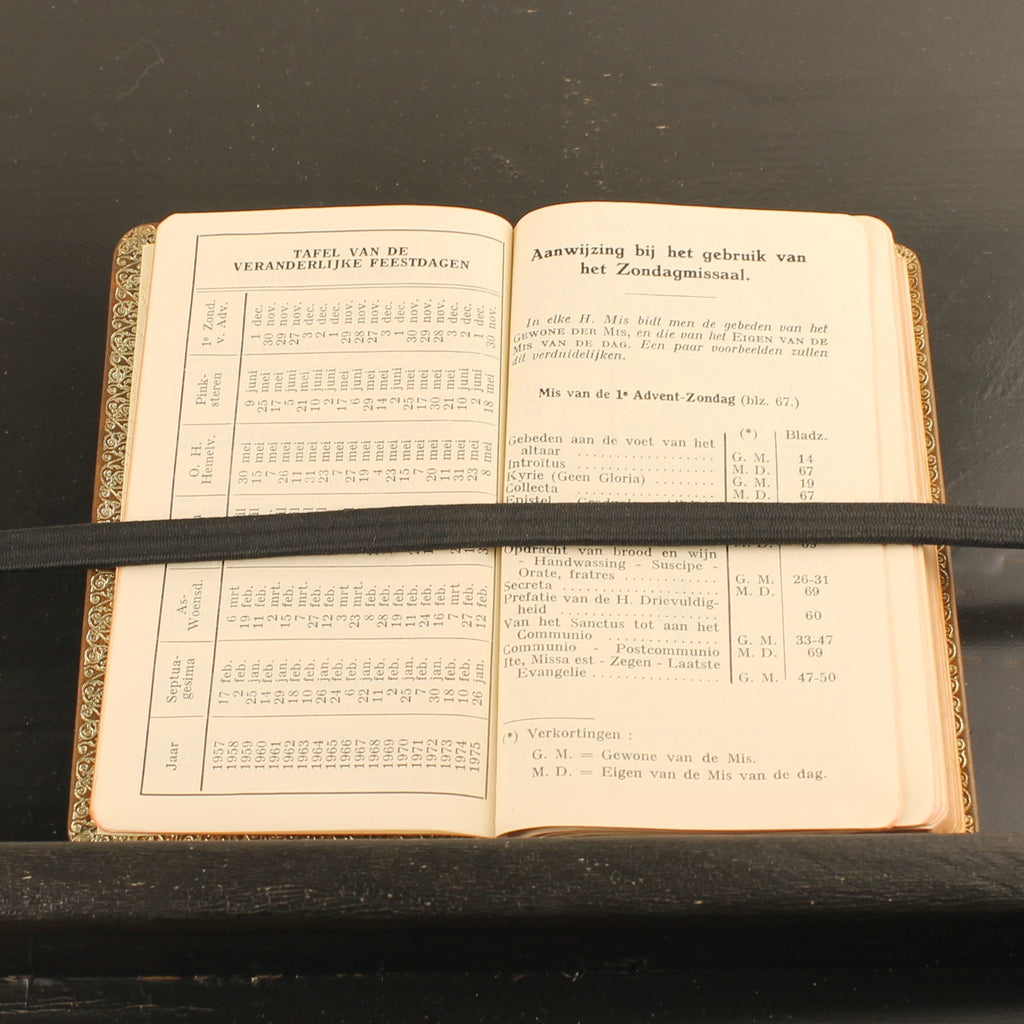 TAFEL VAN DE
VERANDERLIJKE FEESTDAGEN
Jaar Septua- As- O. H. Pink- 1e Zond.
gesima Woensd. Hemelv. steren v. Adv.
1957 17 feb. 6 mrt 30 mei 9 juni 1 dec.
1958 2 feb. 19 feb. 15 mei 25 mei 30 nov.
1959 25 jan. 11 feb. 7 mei 17 mei 29 nov.
1960 14 feb. 2 mrt. 26 mei 5 juni 27 nov.
1961 29 jan. 15 feb. 11 mei 21 mei 3 dec.
1962 18 feb. 7 mrt. 31 mei 10 juni 2 dec.
1963 10 feb. 27 feb. 23 mei 2 juni 1 dec.
1964 26 jan. 12 feb. 7 mei 17 mei 29 nov.
1965 24 feb. 3 mrt 27 mei 6 juni 28 nov.
1966 6 feb. 23 mrt. 19 mei 29 mei 27 nov.
1967 22 jan. 8 feb. 4 mei 14 mei 3 dec.
1968 11 feb. 28 feb. 23 mei 2 juni 1 dec.
1969 2 feb. 19 feb. 15 mei 25 mei 30 nov.
1970 25 jan. 11 feb. 7 mei 17 mei 29 nov.
1971 7 feb. 24 feb. 20 mei 30 mei 28 nov.
1972 30 jan. 16 feb. 11 mei 21 mei 3 dec.
1973 18 feb. 7 mrt 31 mei 10 juni 2 dec.
1974 10 feb. 27 feb. 23 mei 2 juni 1 dec.
1975 26 jan. 12 feb. 8 mei 18 mei 30 nov.
Aanwijzing bij het gebruik van
het Zondagmissaal.
In elke H. Mis bidt men de gebeden van het
GEWONE DER MIS, en die van het EIGEN VAN DE
MIS VAN DE DAG. Een paar voorbeelden zullen
dit verduidelijken.
Mis van de 1e Advent-Zondag (blz. 67.)
(*) Bladz.
Gebeden aan de voet van het
altaar .................. G. M. 14
Introïtus ................ M. D. 67
Kyrie (Geen Gloria) ........ G. M. 19
Collecta ................ M. D. 67
Epistel
Opdracht van brood en wijn
- Handwassing - Suscipe -
Orate, fratres ............ G. M. 26-31
Secreta .................. M. D. 69
Prefatie van de H. Drievuldig-
heid .................. 60
Van het Sanctus tot aan het
Communio .............. G. M. 33-47
Communio - Postcommunio M. D. 69
Ite, Missa est - Zegen - Laatste
Evangelie ................ G. M. 47-50
(*) Verkortingen :
G. M. = Gewone van de Mis.
M. D. = Eigen van de Mis van de dag.